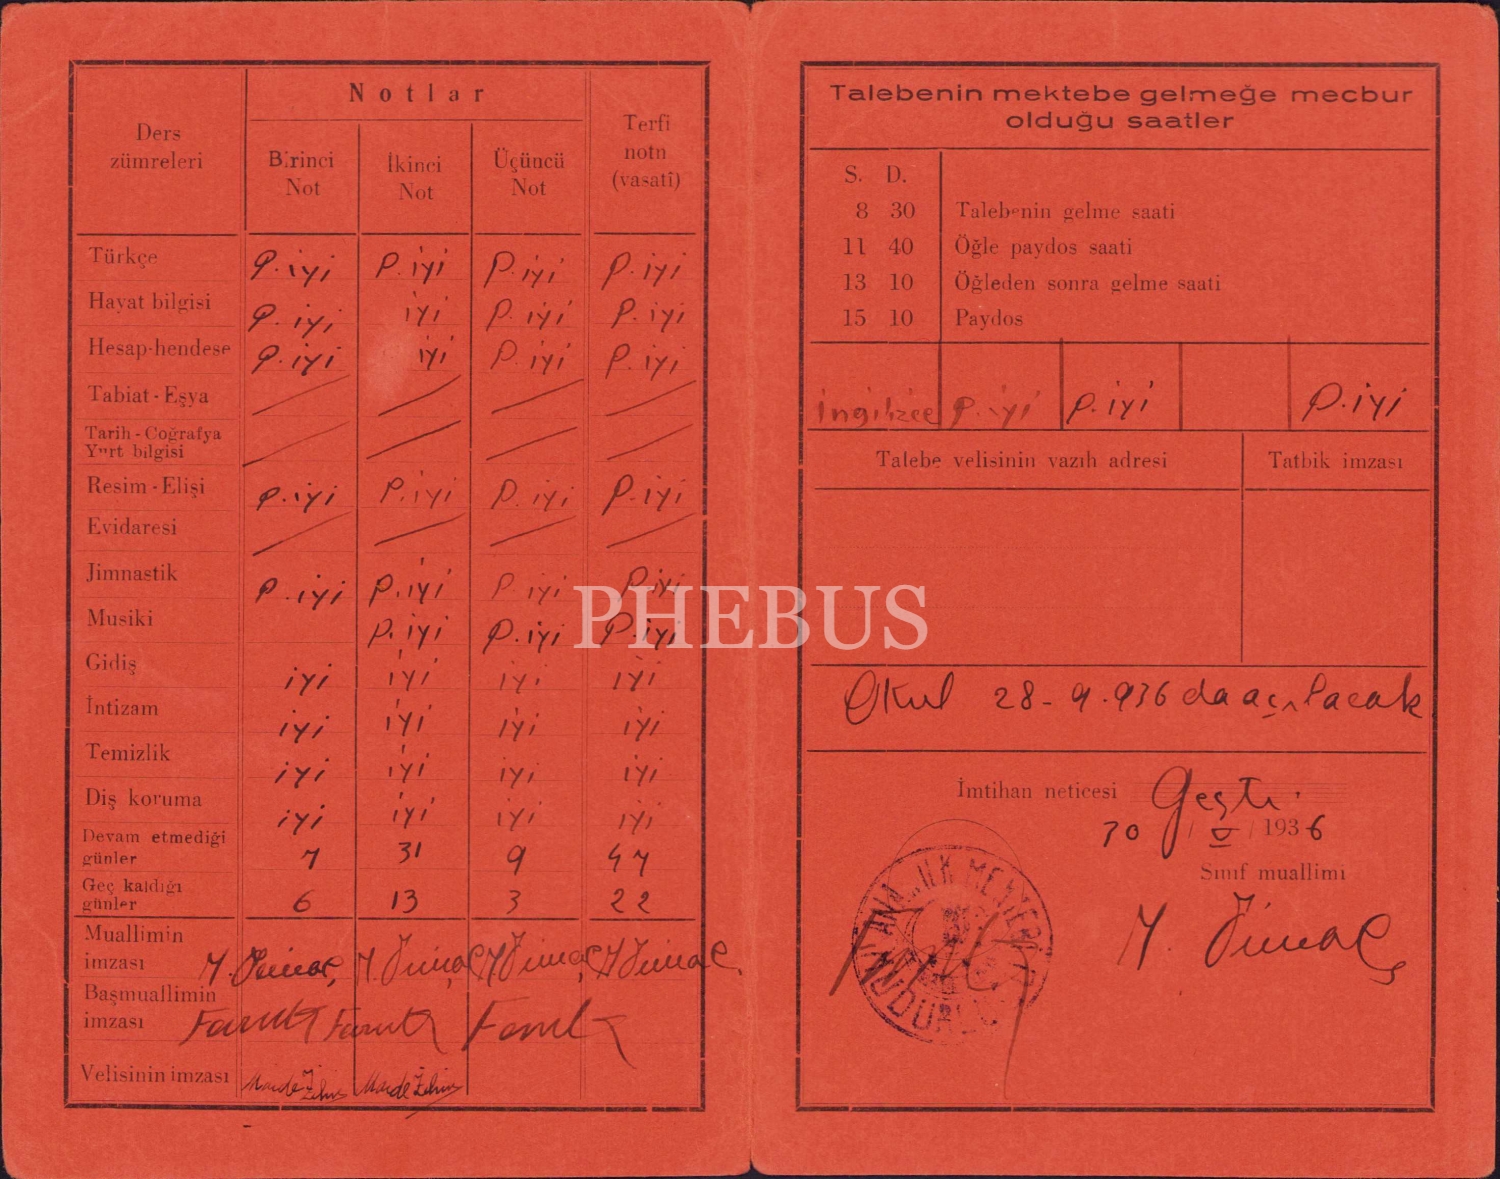 Notlar
Ders zümreleri
Birinci Not
İkinci Not
Üçüncü Not
Terfi notn (vasatî)
Türkçe P.iyi P.iyi P.iyi P.iyi
Hayat bilgisi P.iyi iyi P.iyi P.iyi
Hesap-hendese P.iyi iyi P.iyi P.iyi
Tabiat - Eşya
Tarih - Coğrafya
Yurt bilgisi
Resim - Elişi P.iyi P.iyi P.iyi P.iyi
Evidaresi
Jimnastik P.iyi P.iyi P.iyi P.iyi
Musiki P.iyi P.iyi P.iyi
Gidiş iyi iyi iyi iyi
İntizam iyi iyi iyi iyi
Temizlik iyi iyi iyi iyi
Diş koruma iyi iyi iyi iyi
Devam etmediği günler 7 31 9 47
Geç kaldığı günler 6 13 3 22
Muallimin imzası
Başmuallimin imzası Faruk Faruk Faruk
Velisinin imzası
Talebenin mektebe gelmeğe mecbur
olduğu saatler
S. D.
8 30 Talebenin gelme saati
11 40 Öğle paydos saati
13 10 Öğleden sonra gelme saati
15 10 Paydos
ingilizce P.iyi P.iyi P.iyi
Talebe velisinin vazıh adresi
Tatbik imzası
Okul 28-9.936 da açılacak
İmtihan neticesi Geçti.
30 / V / 1936
Sınıf muallimi
PHEBUS